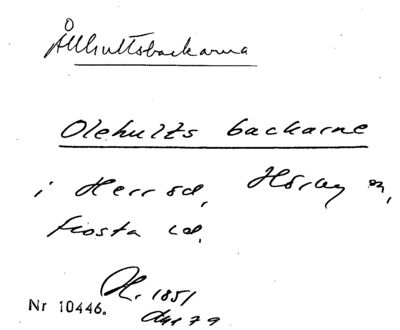 Ållhultsbackarna
Olehults backarne
i Herrod, Hörby sn,
Frosta hd.
H. 1851
Nr 10446.